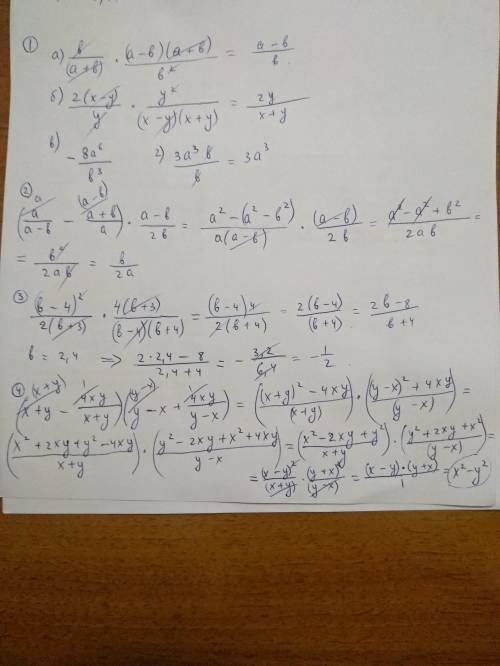 ① а) b/(a+b) · (a-b)(a+b)/b² = a-b/b
б) 2(x-y)/y · y²/(x-y)(x+y) = 2y/x+y
в) -8a⁶/b³ г) 3a³b/b = 3a³
② (a/a-b - a+b/a) · a-b/2b = a²-(a²-b²)/a(a-b) · (a-b)/2b = a²-a²+b²/2ab =
= b²/2ab = b/2a
③ (b-4)²/2(b+3) · 4(b+3)/(b-4)(b+4) = (b-4)4/2(b+4) = 2(b-4)/(b+4) = 2b-8/b+4
b = 2,4 ⇒ 2·2,4-8/2,4+4 = -3,2/6,4 = -1/2
④ (x+y - 4xy/x+y)(y-x+4xy/y-x) = ((x+y)²-4xy/(x+y)) · ((y-x)²+4xy/(y-x)) =
(x²+2xy+y²-4xy/x+y) · (y²-2xy+x²+4xy/y-x) = (x²-2xy+y²/x+y) · (y²+2xy+x²/(y-x)) =
= (x-y)²/(x+y) · (y+x)²/(y-x) = (x-y)·(y+x)/1 = x²-y²